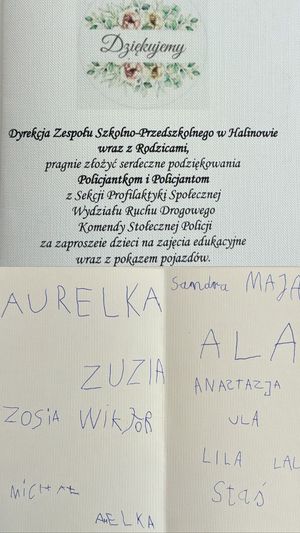 Dziękujemy
Dyrekcja Zespołu Szkolno-Przedszkolnego w Halinowie
wraz z Rodzicami,
pragnie złożyć serdeczne podziękowania
Policjantkom i Policjantom
z Sekcji Profilaktyki Społecznej
Wydziału Ruchu Drogowego
Komendy Stołecznej Policji
za zaproszeie dzieci na zajęcia edukacyjne
wraz z pokazem pojazdów.
AURELKA
ZUZIA
ZOSIA WIKTOR
MICHAŁ
AMELKA
Sandra MAJA
ALA
ANAZTAZJA
ULA
LILA LAL
Staś